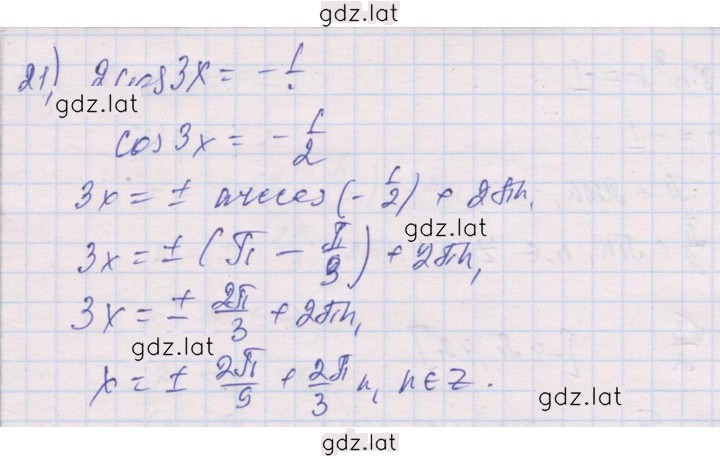 gdz.lat
21) 2cos3x = -1
gdz.lat
cos3x = -1/2
3x = ± arccos(-1/2) + 2πn,
gdz.lat
3x = ± (π - π/3) + 2πn,
3x = ± 2π/3 + 2πn,
gdz.lat
x = ± 2π/9 + 2π/3 n, n∈Z.
gdz.lat
gdz.lat